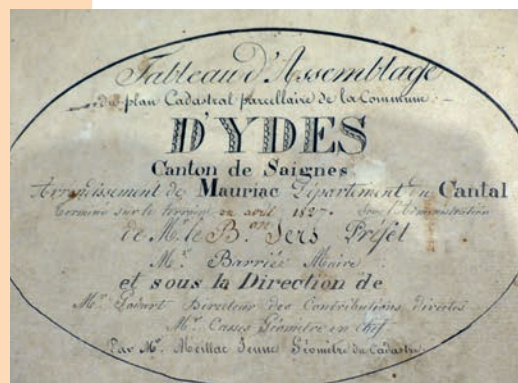 Tableau d'Assemblage
du plan Cadastral parcellaire de la Commune
D'YDES
Canton de Saignes
Arrondissement de Mauriac Département du Cantal
terminé sur le terrain en avril 1827. sous l'Administration
de Mr. le Bon. Sers Préfet
Mr. Barriée Maire
et sous la Direction de
Mr. Directeur des Contributions directes
Mr. Casses Géomètre en chef
Par Mr. Meillac Jeune Géomètre du Cadastre